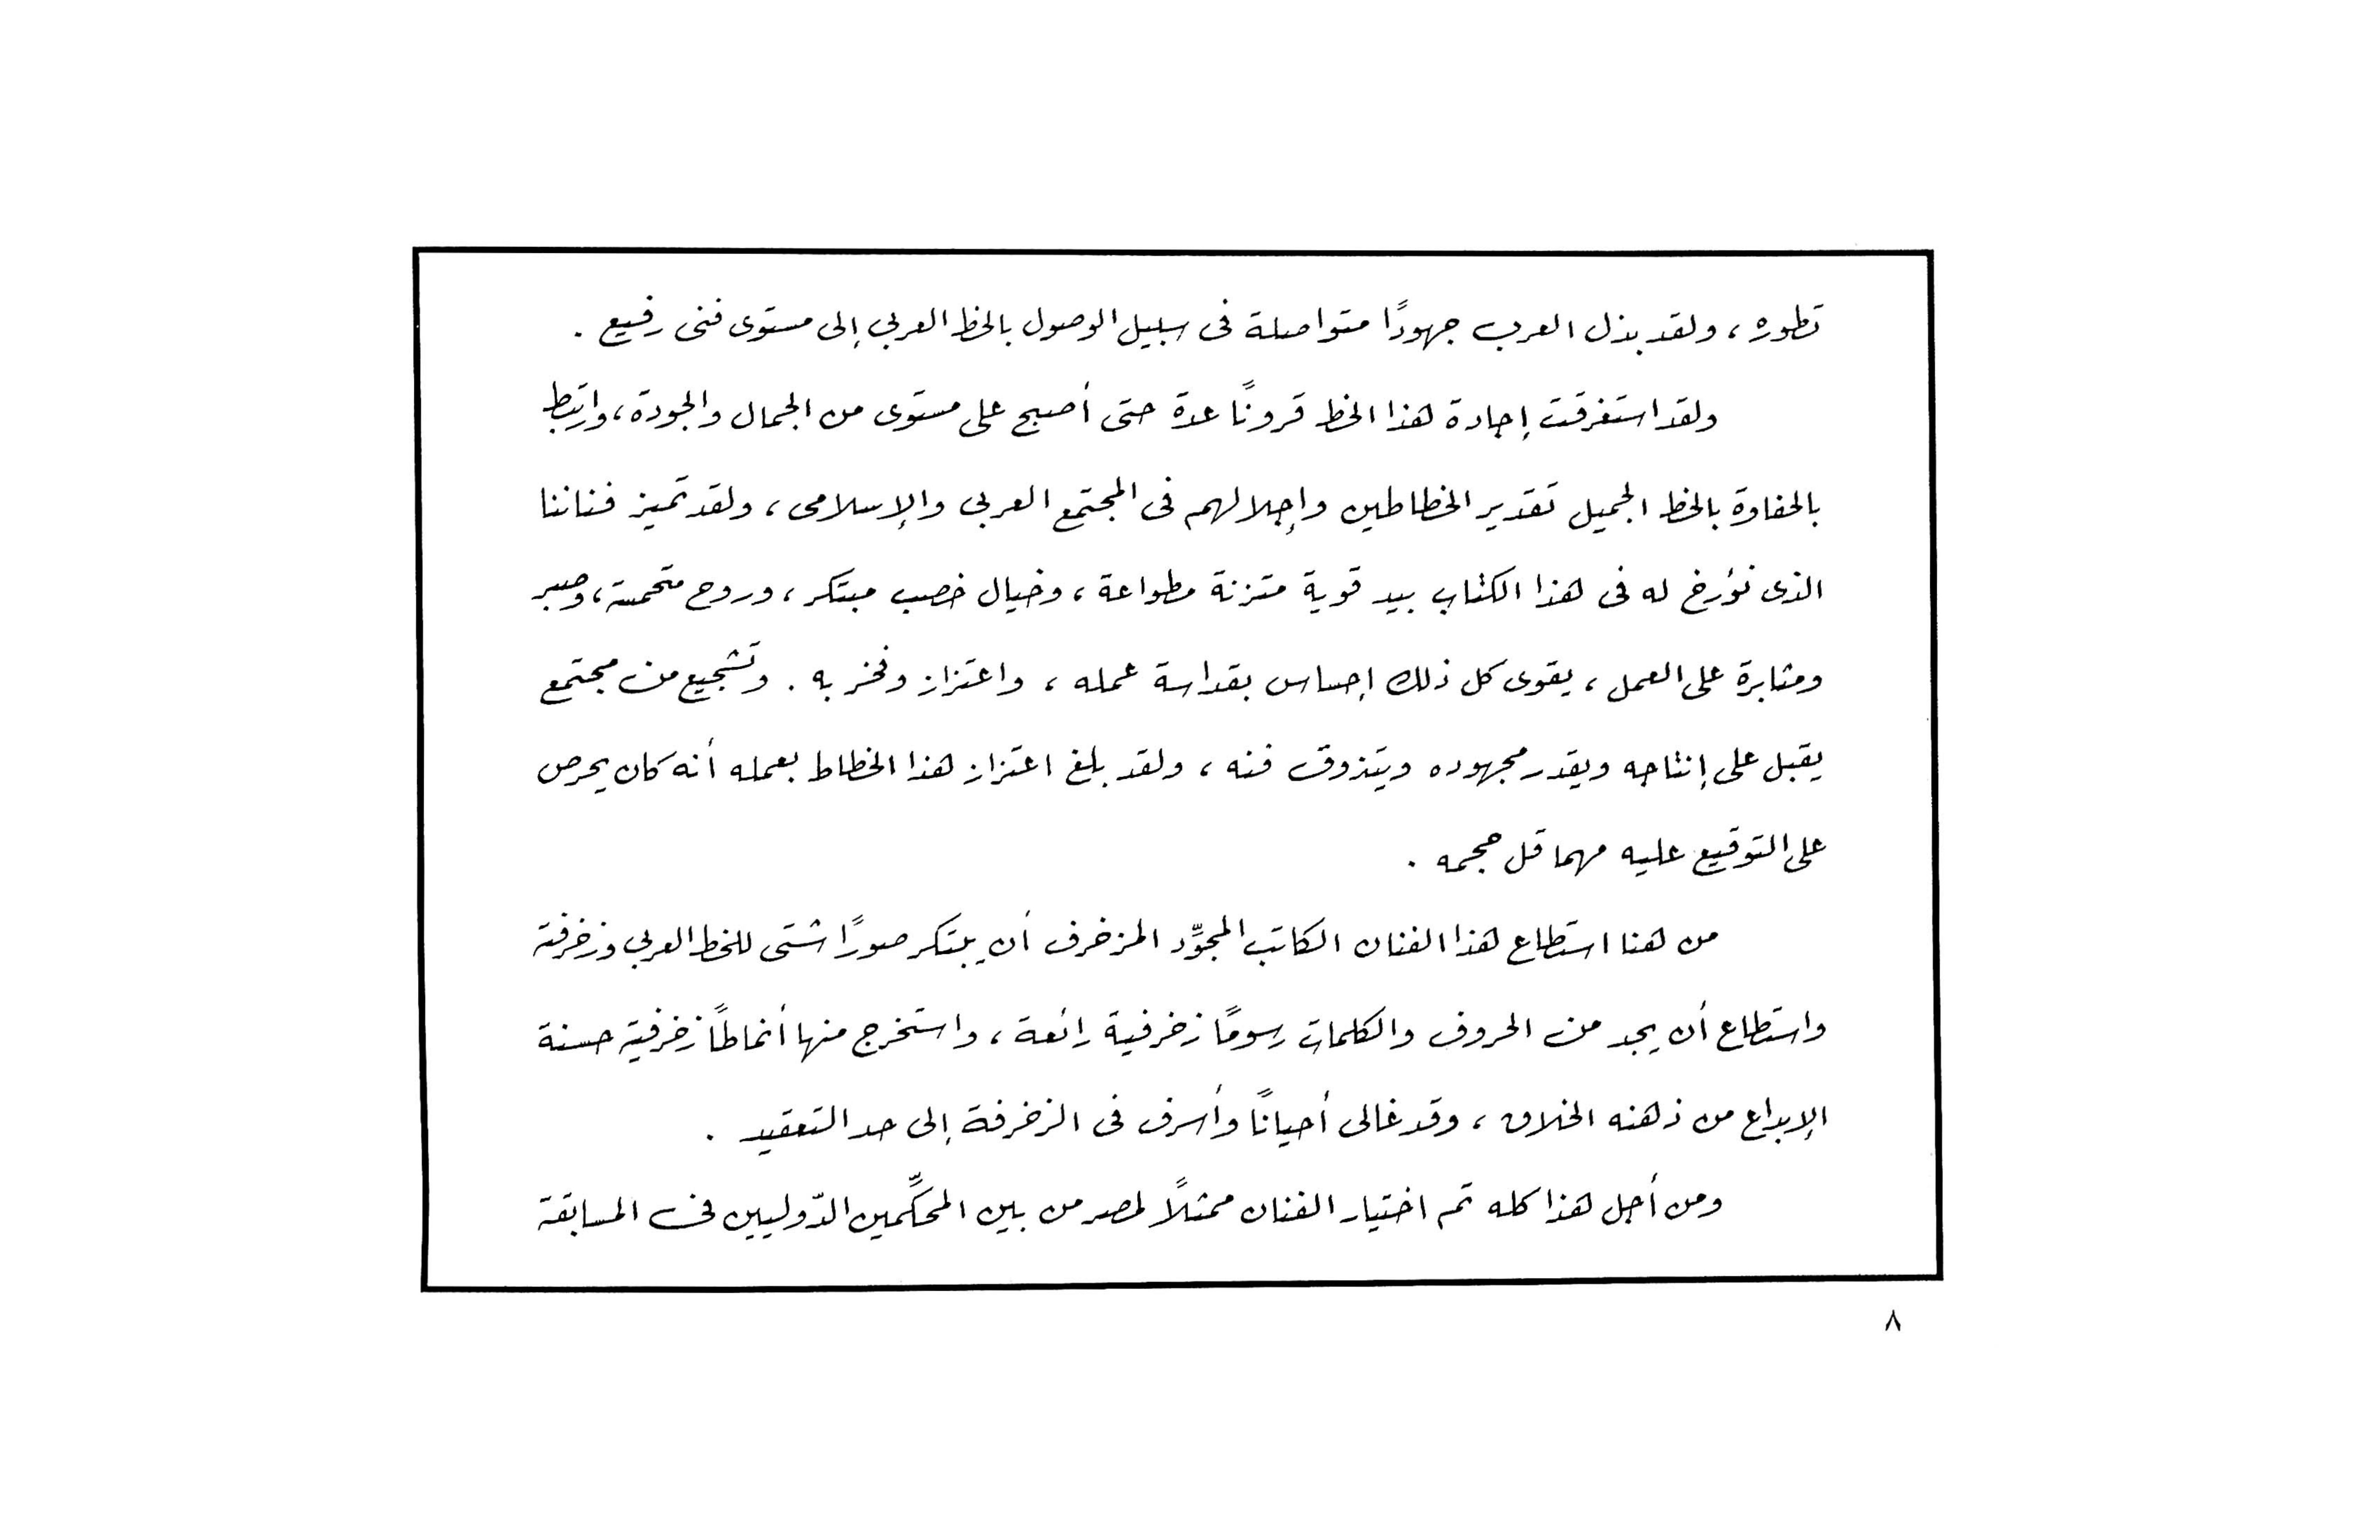 تطوره ، ولقد بذل العرب جهودًا متواصلة فى سبيل الوصول بالخط العربى إلى مستوى فنى رفيع .
ولقد استغرقت إجادة هذا الخط قرونًا عدة حتى أصبح على مستوى من الجمال والجودة ، وارتبط
بالحفاوة بالخط الجميل تقدير الخطاطين وإجلالهم فى المجتمع العربى والإسلامى ، ولقد تميز فناننا
الذى نؤرخ له فى هذا الكتاب بيد قوية متزنة مطواعة ، وخيال خصب مبتكر ، وروح متحمسة ، وصبر
ومثابرة على العمل ، يقوى كل ذلك إحساس بقداسة عمله ، واعتزاز وفخر به . وتشجيع من مجتمع
يقبل على إنتاجه ويقدر مجهوده ويتذوق فنه ، ولقد بلغ اعتزاز هذا الخطاط بعمله أنه كان يحرص
على التوقيع عليه مهما قل حجمه .
من هنا استطاع هذا الفنان الكاتب المجوِّد المزخرف أن يبتكر صورًا شتى للخط العربى وزخرفته
واستطاع أن يجد من الحروف والكلمات رسومًا زخرفية رائعة ، واستخرج منها أنماطًا زخرفية حسنة
الإبداع من ذهنه الخلاق ، وقد غالى أحيانًا وأسرف فى الزخرفة إلى حد التعقيد .
ومن أجل هذا كله تم اختيار الفنان ممثلًا لمصر من بين المحكِّمين الدّوليين فى المسابقة
٨